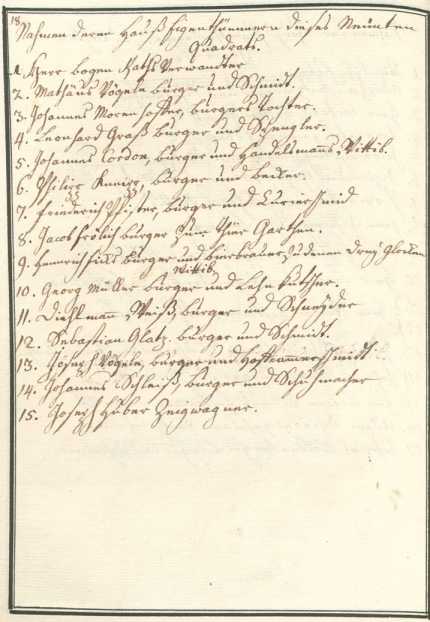 18.
Nahmen deren Hauß Eigenthümmern dieses Neünten
Quadrats.
1. Herr bogen Raths Verwandter
2. Mathäus Vögele bürger und Schmidt.
3. Johannes bürgers Tochter.
4. Leonhard Graß bürger und Spengler.
5. Johannes Cordon, bürger und Handelsmanns, Wittib.
6. Philipp bürger und becker.
7. Friederich Pfister, bürger und
8. Jacob Frölich bürger zum Garthen.
9. Heinrich bürger und bierbrauer zu denen Dreÿ Glocken
Wittib
10. Georg Müller bürger und Lehn Kutscher.
11. Weiß, bürger und Schneÿder
12. Sebastian Glatz. bürger und Schmidt.
13. Joseph Vögele, bürger und
14. Johannes Schleiß, bürger und Schuhmacher
15. Joseph Huber Zeugwagner.